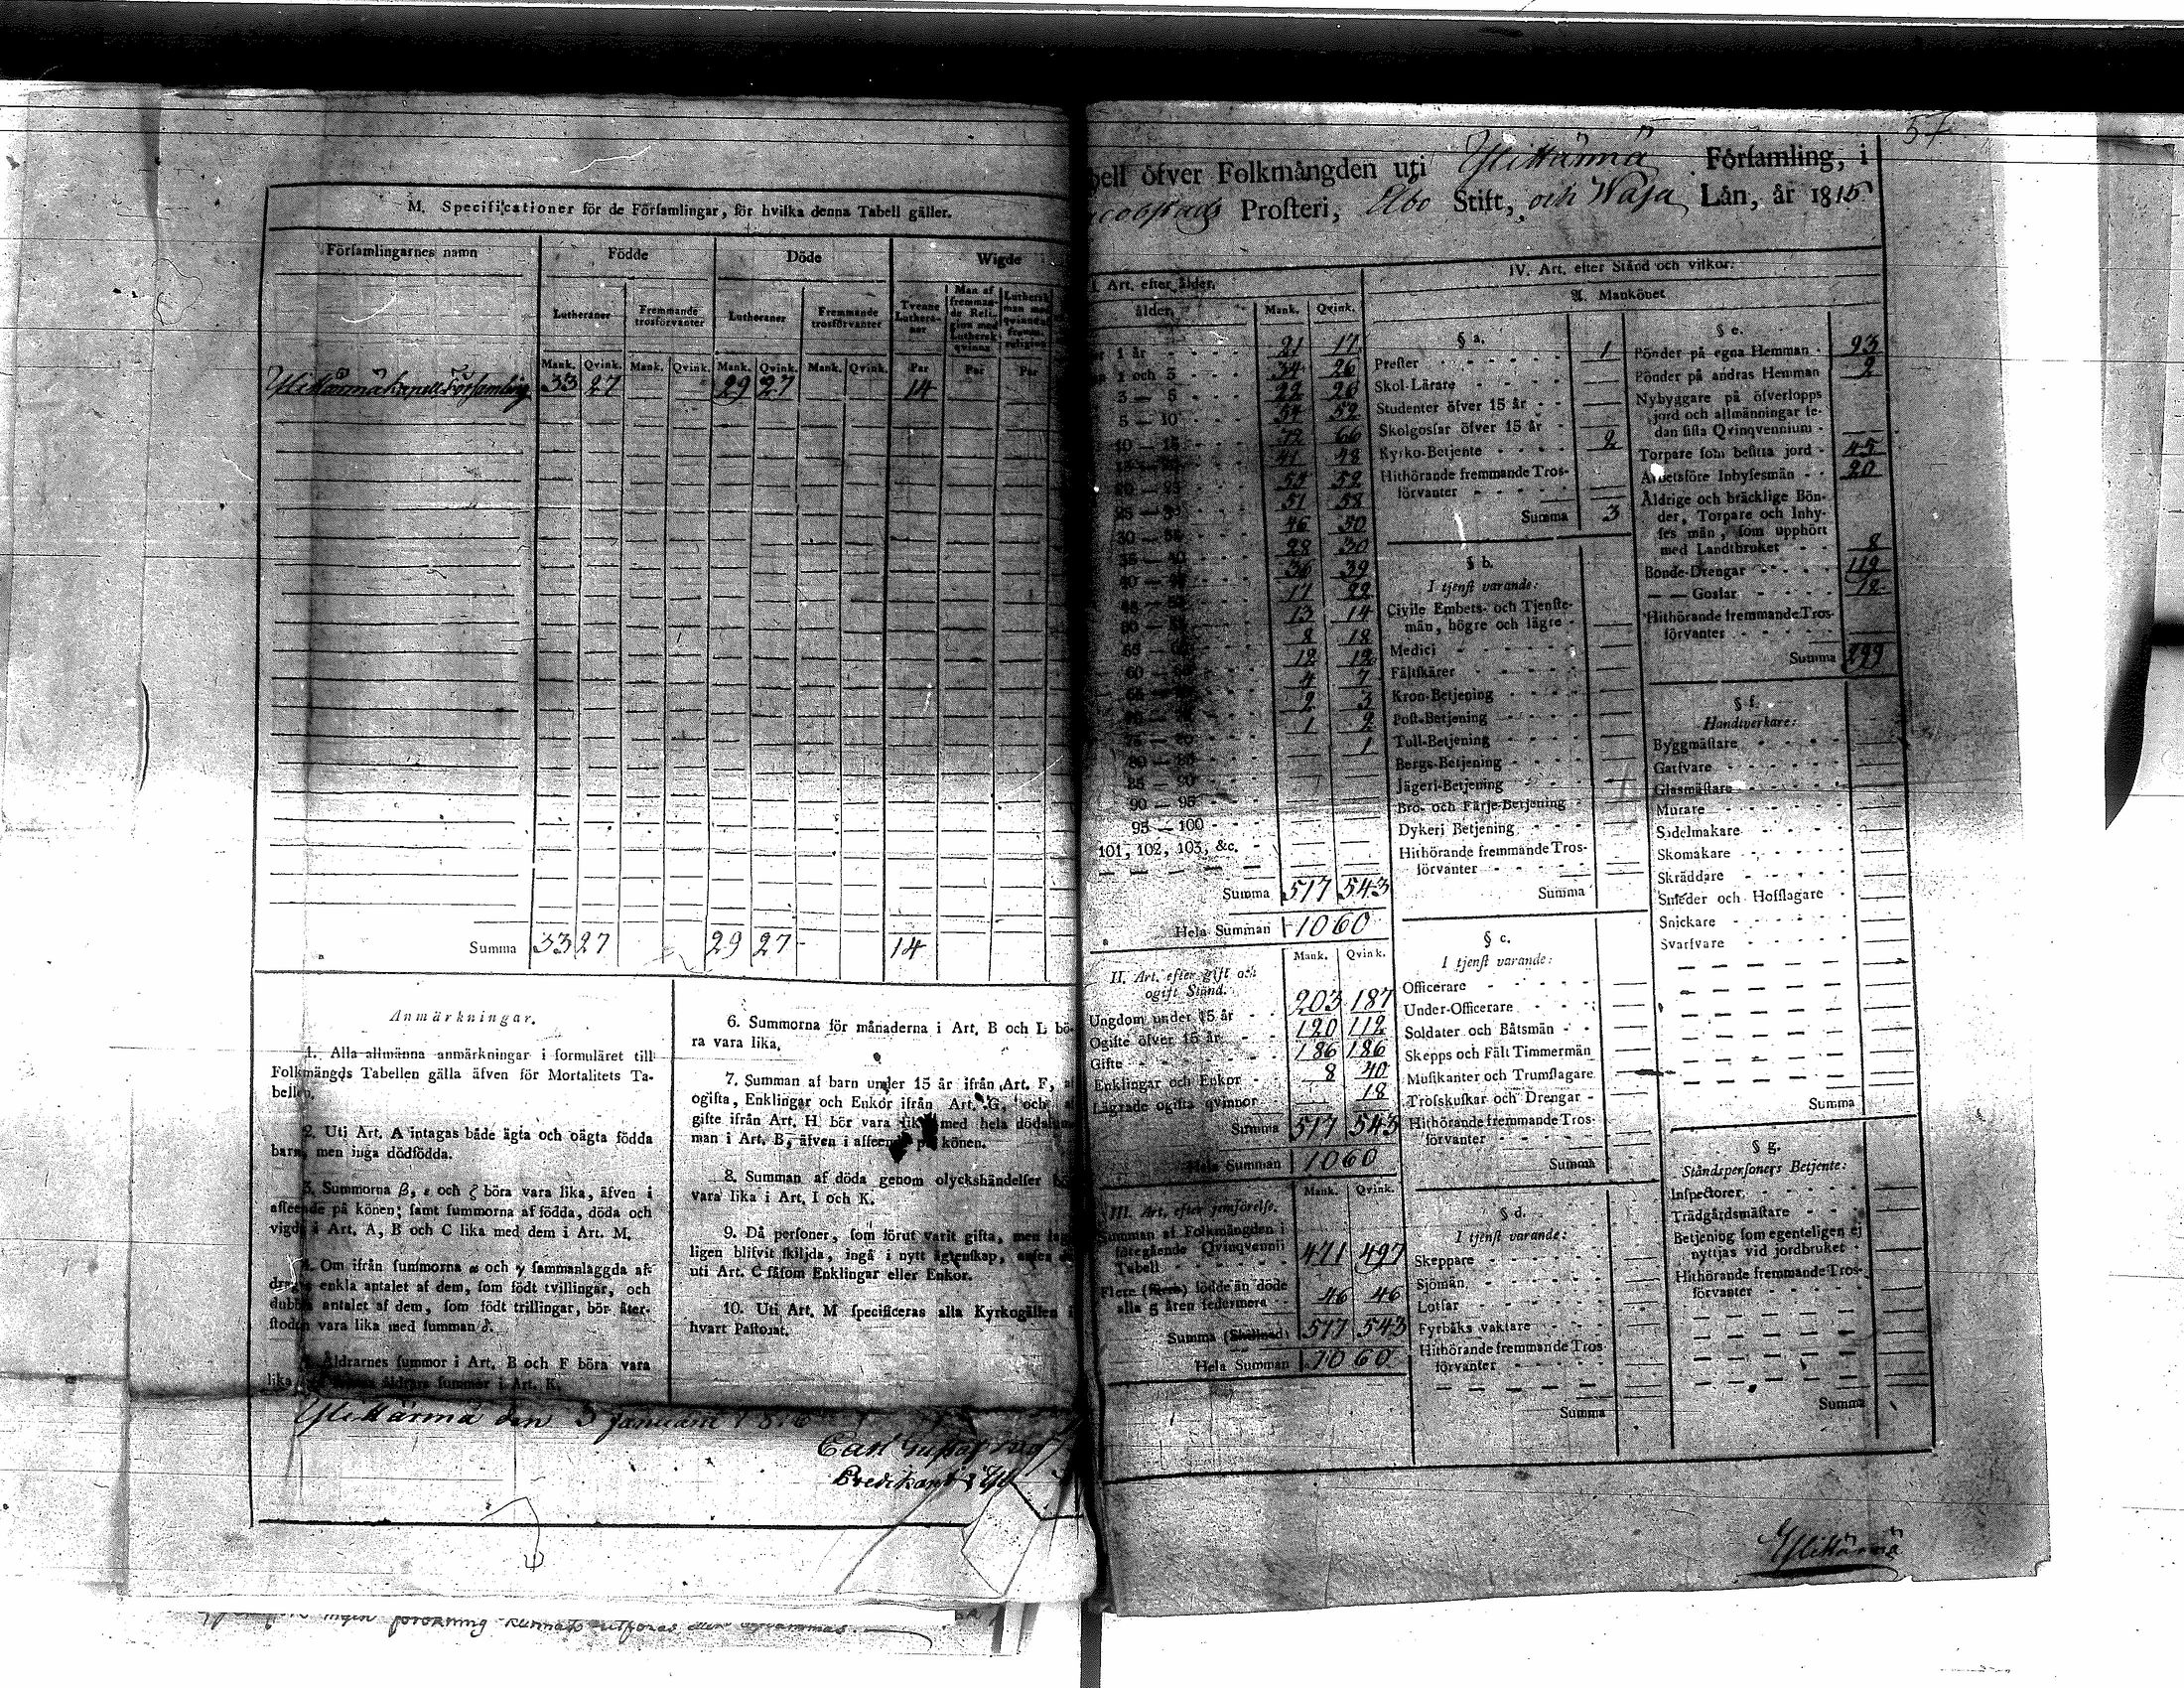 M. Specificationer för de Församlingar, för hvilka denna Tabell gäller.
Församlingarnes namn Födde Döde Wigde
Lutheraner Fremmande trosförvanter Lutheraner Fremmande trosförvanter Tvenne Lutheraner Man af fremmande Religion med Luthersk qvinna Luthersk man med qvinna af fremm. religion
Mank. Qvink. Mank. Qvink. Mank. Qvink. Mank. Qvink. Par Par Par
YliHärmä Kapell Församling 33 27 29 27 14
Summa 33 27 29 27 14
Anmärkningar.
1. Alla allmänna anmärkningar i formuläret till
Folkmängds Tabellen gälla äfven för Mortalitets Ta-
bellen.
2. Uti Art. A intagas både ägta och oägta födda
barn, men inga dödfödda.
3. Summorna β, ε och ζ böra vara lika, äfven i
afseende på könen; samt summorna af födda, döda och
vigda i Art. A, B och C lika med dem i Art. M.
4. Om ifrån summorna α och γ sammanlaggda af-
drages enkla antalet af dem, som födt tvillingar, och
dubbla antalet af dem, som födt trillingar, bör åter-
stoden vara lika med summan δ.
Åldrarnes summor i Art. B och F böra vara
lika åldrars summor i Art. K.
6. Summorna för månaderna i Art. B och L bö-
ra vara lika.
7. Summan af barn under 15 år ifrån Art. F, af
ogifta, Enklingar och Enkor ifrån Art. G, och af
gifte ifrån Art. H bör vara lika med hela dödssum-
man i Art. B, äfven i afseende på könen.
8. Summan af döda genom olyckshändelser bör
vara lika i Art. I och K.
9. Då personer, som förut varit gifta, men lag-
ligen blifvit skiljda, ingå i nytt ägtenskap, anses de
uti Art. C såsom Enklingar eller Enkor.
10. Uti Art. M specificeras alla Kyrkogällen i
hvart Pastorat.
YliHärmä den 3 Januarii 1816
Carl Gustaf
Predikant i Yli
ingen förökning kunnat utföras
57
bell öfver Folkmängden uti YliHärmä Församling, i
acobstads Prosteri, Åbo Stift, och Wasa Län, år 1815
I. Art. efter ålder.
ålder. Mank. Qvink.
1 år 21 17
1 och 3 34 26
3 — 5 22 26
5 — 10 54 52
10 — 15 72 66
15 — 20 41 48
20 — 25 55 52
25 — 30 51 58
30 — 35 46 50
35 — 40 28 30
40 — 45 36 39
45 — 50 17 22
50 — 55 13 14
55 — 60 8 18
60 — 65 12 12
65 — 70 4 7
70 — 75 2 3
75 — 80 1 2
80 — 85 1
85 — 90
90 — 95
95 — 100
101, 102, 103, &c.
Summa 517 543
Hela Summan 1060
II. Art. efter gift och ogift Stånd. Mank. Qvink.
Ungdom under 15 år 203 187
Ogifte öfver 15 år 120 112
Gifte 186 186
Enklingar och Enkor 8 40
Lägrade ogifta qvinnor 18
Summa 517 543
Hela Summan 1060
III. Art. efter jemförelse. Mank. Qvink.
Summan af Folkmängden i
föregående Qvinqvennii
Tabell 471 497
Flere (färre) födde än döde
alla 5 åren sedermera 46 46
Summa (Skillnad) 517 543
Hela Summan 1060
IV. Art. efter Stånd och vilkor.
A. Mankönet
§ a.
Prester 1
Skol-Lärare
Studenter öfver 15 år
Skolgossar öfver 15 år
Kyrko-Betjente 2
Hithörande fremmande Tros-
förvanter
Summa 3
§ b.
I tjenst varande:
Civile Embets- och Tjenste-
män, högre och lägre
Medici
Fältskärer
Kron-Betjening
Post-Betjening
Tull-Betjening
Bergs-Betjening
Jägeri-Betjening
Bro- och Färje-Betjening
Dykeri Betjening
Hithörande fremmande Tros-
förvanter
Summa
§ c.
I tjenst varande:
Officerare
Under-Officerare
Soldater och Båtsmän
Skepps och Fält Timmermän
Musikanter och Trumslagare
Trosskuskar och Drengar
Hithörande fremmande Tros-
förvanter
Summa
§ d.
I tjenst varande:
Skeppare
Sjömän
Lotsar
Fyrbåks vaktare
Hithörande fremmande Tros-
förvanter
Summa
§ e.
Bönder på egna Hemman 93
Bönder på andras Hemman 2
Nybyggare på öfverlopps
jord och allmänningar se-
dan sista Qvinqvennium
Torpare som besitta jord 45
Arbetsföre Inhysesmän 20
Åldrige och bräcklige Bön-
der, Torpare och Inhy-
ses män, som upphört
med Landtbruket 8
Bonde-Drengar 119
— — Gossar 12
Hithörande fremmande Tros-
förvanter
Summa 299
§ f.
Handtverkare:
Byggmästare
Garfvare
Glasmästare
Murare
Sadelmakare
Skomakare
Skräddare
Smeder och Hofslagare
Snickare
Svarfvare
Summa
§ g.
Ståndspersoners Betjente:
Inspectorer
Trädgårdsmästare
Betjening som egenteligen ej
nyttjas vid jordbruket
Hithörande fremmande Tros-
förvanter
Summa
YliHärmä